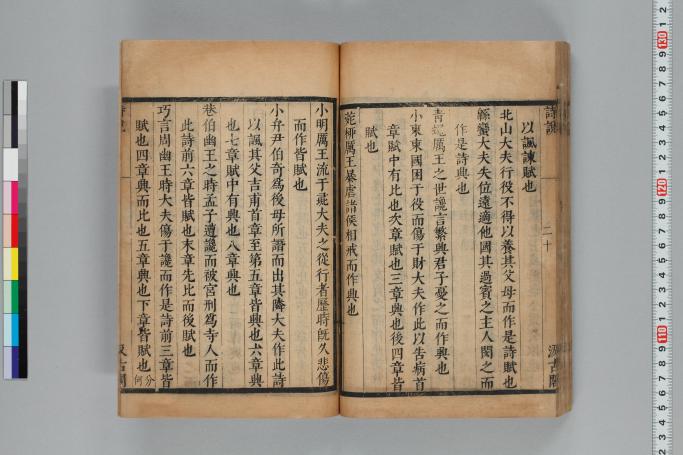 詩說
二十
汲古閣
以諷諫賦也
北山大夫行役不得以養其父母而作是詩賦也
緜蠻大夫失位遠適他國其過賓之主人閔之而
作是詩興也
青蠅厲王之世讒言繁興君子憂之而作興也
小東東國困于役而傷于財大夫作此以告病首
章賦中有比也次章賦也三章興也後四章皆
賦也
菀柳厲王暴虐諸侯相戒而作興也
小明厲王流于彘大夫之從行者歷時旣久悲傷
而作皆賦也
小弁尹伯奇爲後母所譖而出其隣大夫作此詩
以諷其父吉甫首章至第五章皆興也六章興
也七章賦中有興也八章興也
巷伯幽王之時孟子遭讒而被宮刑爲寺人而作
此詩前六章皆賦也末章先比而後賦也
巧言周幽王時大夫傷于讒而作是詩前三章皆
賦也四章興而比也五章興也下章皆賦也
汲古閣
110
120
130